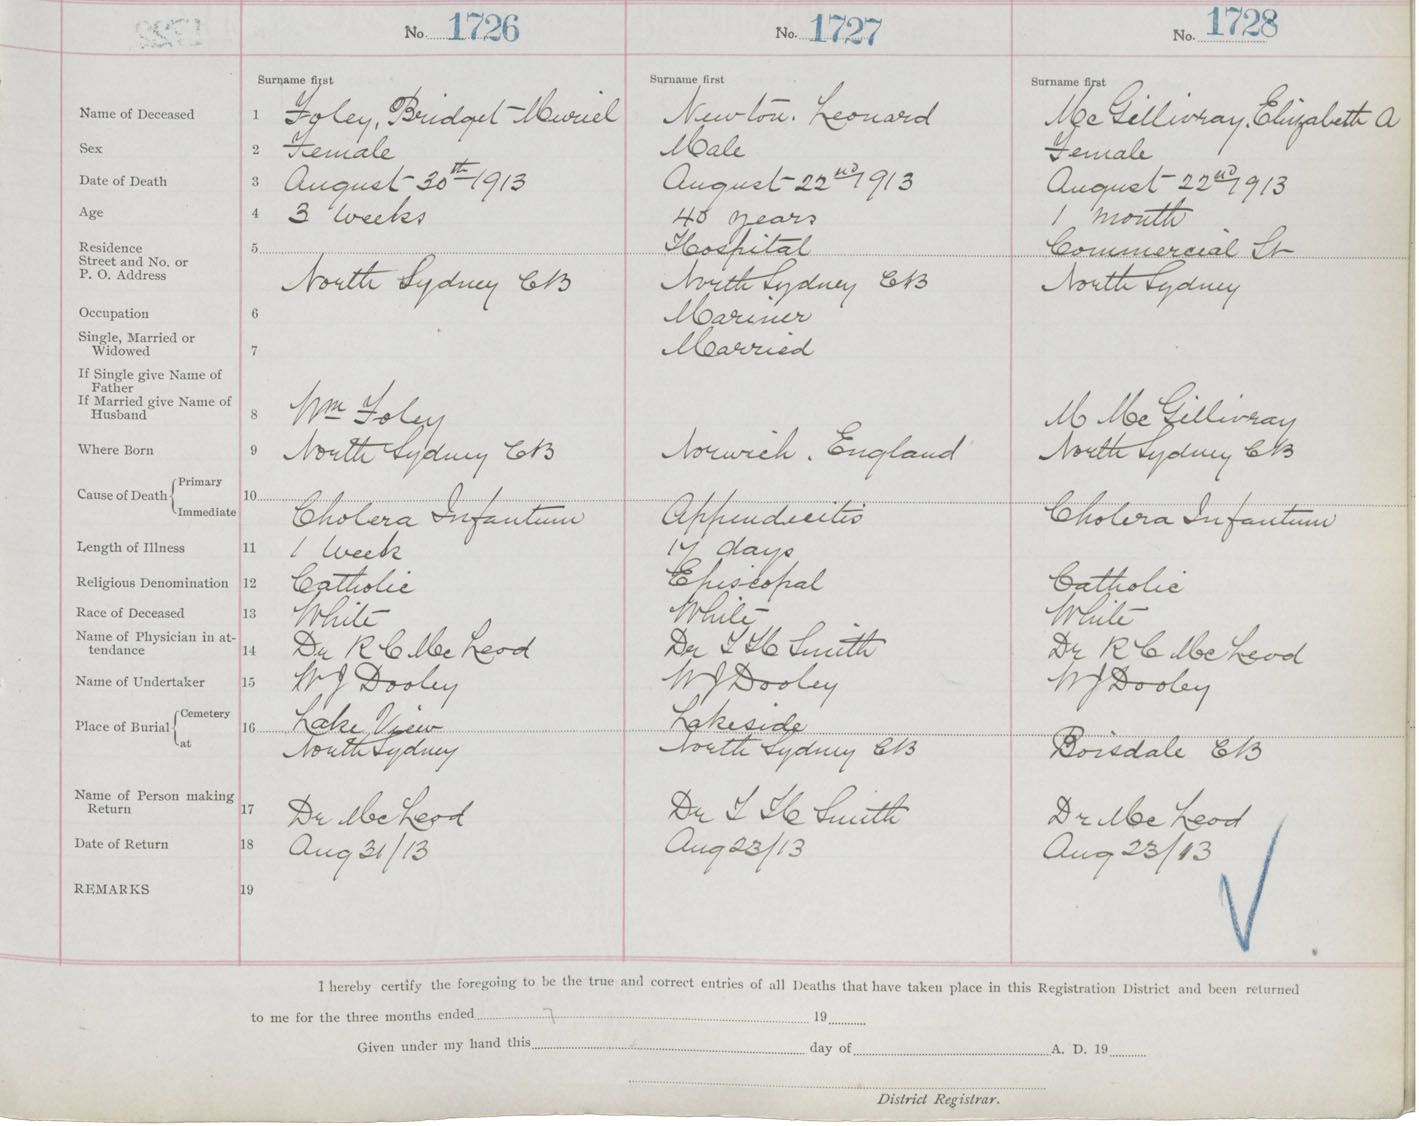 No. 1726 No. 1727 No. 1728
Surname first Surname first Surname first
Name of Deceased 1 Foley, Bridget Muriel Newton. Leonard McGillivray, Elizabeth A
Sex 2 Female Male Female
Date of Death 3 August 30th 1913 August 22nd 1913 August 22nd 1913
Age 4 3 Weeks 40 years 1 month
Residence 5 Hospital Commercial St
Street and No. or
P. O. Address North Sydney CB North Sydney CB North Sydney
Occupation 6 Mariner
Single, Married or
Widowed 7 Married
If Single give Name of
Father
If Married give Name of
Husband 8 Wm Foley M McGillivray
Where Born 9 North Sydney CB Norwich. England North Sydney CB
Cause of Death Primary 10
Immediate Cholera Infantum Appendicitis Cholera Infantum
Length of Illness 11 1 Week 17 days
Religious Denomination 12 Catholic Episcopal Catholic
Race of Deceased 13 White White White
Name of Physician in at-
tendance 14 Dr R C McLeod Dr Smith Dr R C McLeod
Name of Undertaker 15 W J Dooley W J Dooley W J Dooley
Place of Burial Cemetery 16 Lake View Lakeside
at North Sydney North Sydney CB Boisdale CB
Name of Person making
Return 17 Dr McLeod Dr Smith Dr McLeod
Date of Return 18 Aug 31/13 Aug 23/13 Aug 23/13
REMARKS 19
I hereby certify the foregoing to be the true and correct entries of all Deaths that have taken place in this Registration District and been returned
to me for the three months ended 19
Given under my hand this day of A. D. 19
District Registrar.